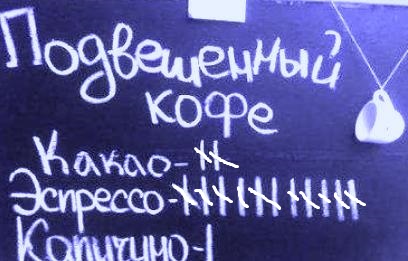 Подвешенный
кофе
Какао-
Эспрессо-
Капучино-